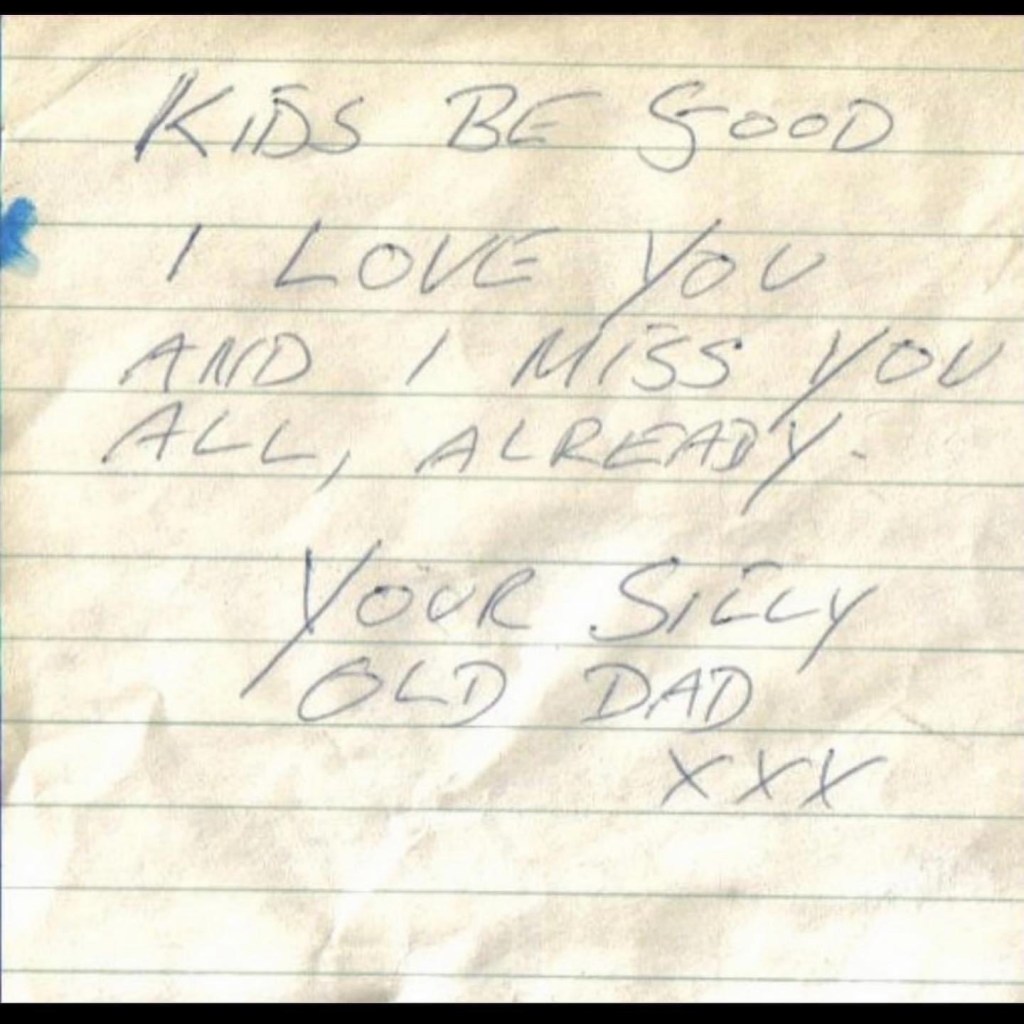 KiDS BE GOOD
I LOVE YOU
AND I MiSS YOU
ALL, ALREADY.
YOUR SiLLY
OLD DAD
XXX